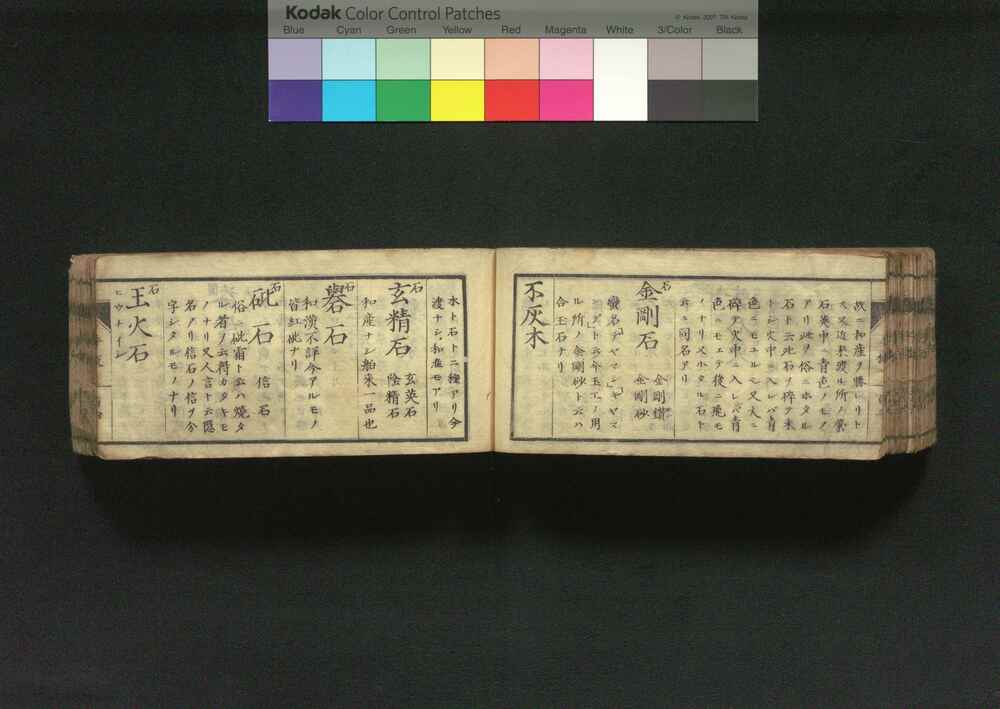 Kodak Color Control Patches
© Kodak, 2007 TM: Kodak
Blue Cyan Green Yellow Red Magenta White 3/Color Black
故ニ和産ヲ勝レリト
ス又近来渡ル所ノ雲
石英中ニ青色ノモノ
アリ此ヲ俗ニホタル
石ト云此石ヲ碎テ末
トシ火中ニ入レバ青
色ニモユル也又大ニ
碎テ火中ニ入レバ青
色ニモエテ後ニ飛モ
ノナリ又ホタル石ト
石
金剛石 金剛鑽
金剛砂
蠻名ヂヤマン
ト云今玉工ノ用
ル所ノ金剛砂ト云ハ
合玉石ナリ
不灰木
木ト石ト二種アリ今
渡ナシ和産モアリ
石
玄精石 玄英石
陰精石
和産ナシ舶来一品也
石
礜石
和漢不詳今アルモノ
皆紅砒ナリ
石
砒石 信石
俗ニ砒霜ト云ハ燒タ
ル者ヲ云得カタキモ
ノナリ又人言ト云隠
名アリ信石ノ信ヲ分
字シタルモノナリ
石
玉火石
ヒウチイシ